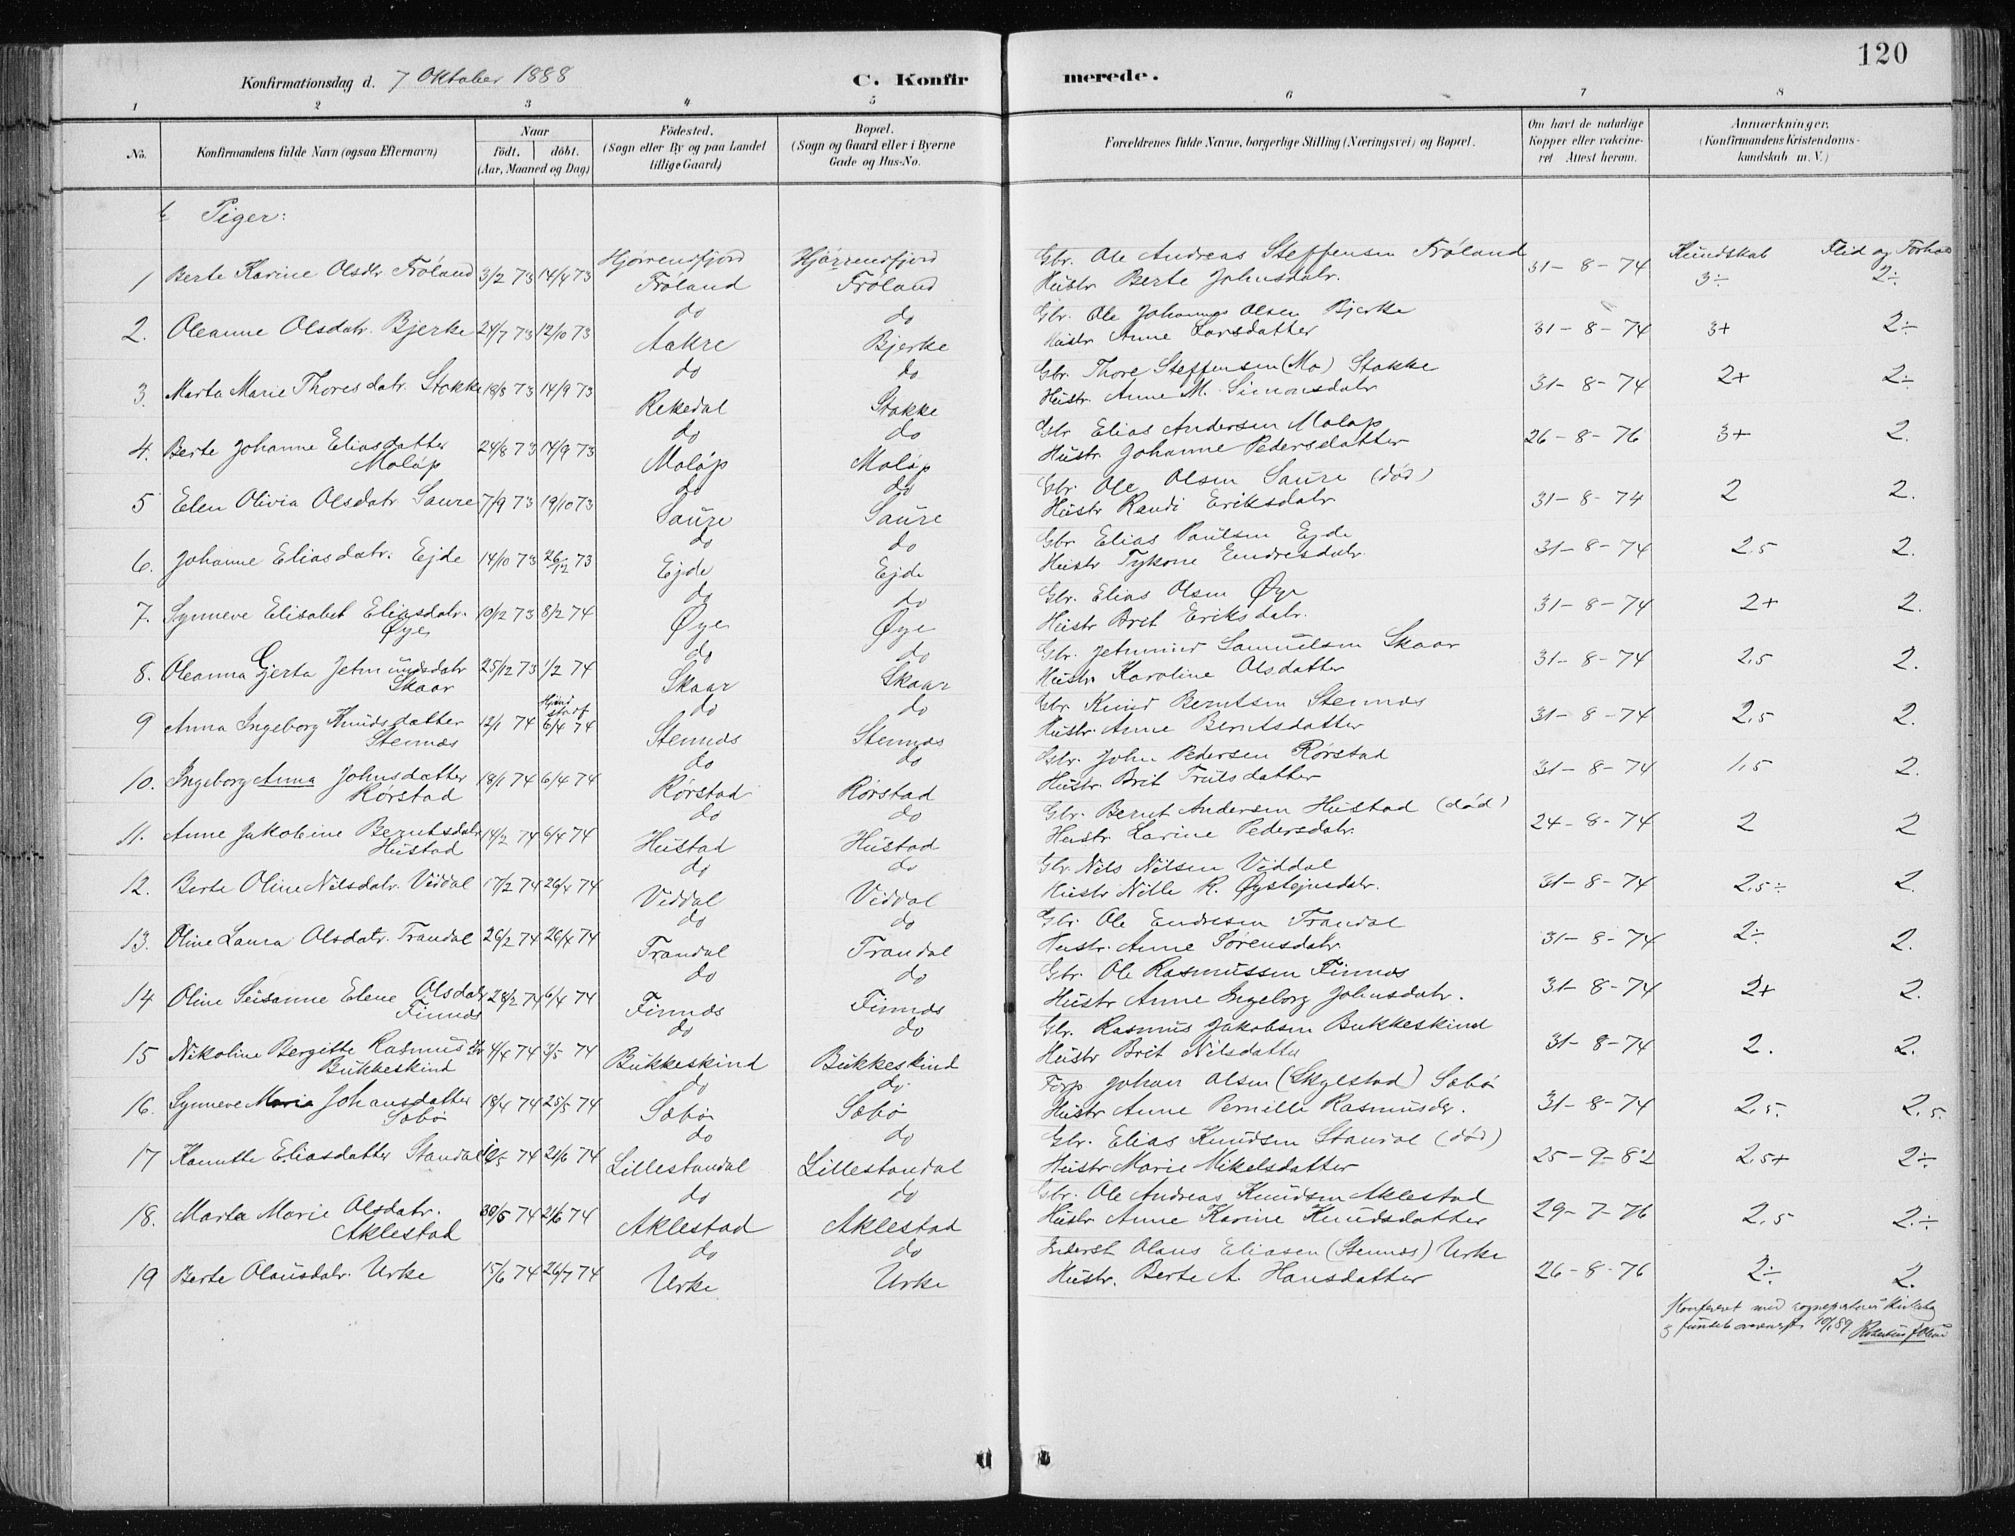 120
Konfirmationsdag d. 7 Oktober 1888 C. Konfirmerede.
1 2 3 4 5 6 7 8
No. Konfirmandens fulde Navn (ogsaa Efternavn) Naar født, døbt. (Aar, Maaned og Dag) Fødested. (Sogn eller By og paa Landet tillige Gaard) Bopæl. (Sogn og Gaard eller i Byerne Gade og Hus-No. Forældrenes fulde Navne, borgerlige Stilling (Næringsvei) og Bopæl. Om havt de naturlige Kopper eller vakcineret. Attest herom. Anmærkninger. (Konfirmandens Kristendomskundskab m. V.)
Piger:
Kundskab Flid og Forhold
1 Berte Karine Olsdtr Frøland 3/2 73 14/4 73 Hjørendfjord Frøland Hjørrendfjord Frøland Gbr. Ole Andreas Steffensen Frøland 31-8-74 3÷ 2÷
Hustr Berte Johnsdatr.
2. Oleanne Olsdatr. Bjerke 24/7 73 12/10 73 do Aakre do Bjerke Gbr. Ole Johannes Olsen Bjerke 31-8-74 3+ 2÷
Hustr Anne Larsdatter
3. Marta Marie Thoresdatr. Stokke 18/8 73 14/9 73 do Rekedal do Stokke Gbr. Thore Steffensen (Mo) Stokke 31-8-74 2+ 2÷
Hustr. Anne M. Simonsdatr
4. Berte Johanne Eliasdatter Moløp 24/8 73 14/9 73 do Moløp do Moløp Gbr Elias Andersen Moløp 26-8-76 3+ 2.
Hustr Johanne Pedersdatter
5 Elen Olivia Olsdatr Saure 7/9 73 19/10 73 do Saure do Saure Gbr. Ole Olsen Saure (død) 31-8-74 2 2.
Hustr Randi Eriksdatr
6. Johanne Eliasdatr. Ejde 14/10 73 26/12 73 do Ejde do Ejde Gbr Elias Paulsen Ejde 31-8-74 2,5 2.
Hustr Endresdatr
7. Synneve Elisabet Eliasdatr. Øye 19/2 73 8/2 74 do Øye do Øye Gbr. Elias Olsen Øye 31-8-74 2+ 2.
Hustr Brit Eriksdatr.
8. Oleanna Gjerta Jetmundsdatr Skaar 25/12 73 1/2 74 do Skaar do Skaar Gbr. Jetmund Samuelsen Skaar 31-8-74 2,5 2.
Hustr Karoline Olsdatter
9 Anna Ingeborg Knudsdatter Stennes 12/1 74 6/4 74 do Stennes do Stennes Gbr Knud Berntsen Stennes 31-8-74 2,5 2.
Hustr. Anne Berntsdatter
10. Ingeborg Anna Johnsdatter Rørstad 18/1 74 6/4 74 do Rørstad do Rørstad Gbr. John Pedersen Rørstad 31-8-74 1,5 2.
Hustr Brit
11. Anne Jakobine Berntsdatr Hustad 14/2 74 6/4 74 do Hustad do Hustad Gbr. Bernt Andersen Hustad (død) 24-8-74 2 2
Hustr Karine Pedersdatr.
12. Berte Oline Nilsdatr. Viddal 17/2 74 26/4 74 do Viddal do Viddal Gbr. Nils Nilsen Viddal 31-8-74 2,5÷ 2.
Hustr Nille R. Øystejnsdatr.
13. Oline Laura Olsdatr. Trandal 26/2 74 26/4 74 do Trandal do Trandal Gbr. Ole Endresen Trandal 31-8-74 2÷ 2.
Hustr. Anne Sørensdatr
14 Oline Susanne Elene Olsdatr Finnes 28/2 74 6/4 74 do Finnes do Finnes Gbr. Ole Rasmussen Finnes 31-8-74 2+ 2.
Hustr Anne Ingeborg Johnsdatr.
15 Nikoline Bergitte Rasmusdtr Bukkeskind 4/4 74 3/5 74 do Bukkeskind do Bukkeskind Gbr. Rasmus Jakobsen Bukkeskind 31-8-74 2. 2.
Hustr Brit Nilsdatter
16. Synneve Marie Johansdatter Sæbø 18/4 74 25/5 74 do Sæbø do Sæbø Forp Johan Olsen (Skylstad) Sæbø 31-8-74 2,5. 2,5.
Hustr Anne Pernille Rasmusdr.
17 Kanutte Eliasdatter Standal 74 21/6 74 do Lillestandal do Lillestandal Gbr. Elias Knudsen Standal (død) 25-9-82 2,5+ 2÷
Hustr Marie Mikelsdatter
18. Marta Marie Olsdatr. Aklestad 30/5 74 21/6 74 do Aklestad do Aklestad Gbr. Ole Andreas Knudsen Aklestad 29-7-76 2,5 2.÷
Hustr Anne Karine Knudsdatter
19 Berte Olausdatr. Urke 15/6 74 26/7 74 do Urke do Urke Inderst Olaus Eliasen (Stennes) Urke 26-8-76 2÷ 2.
Hustr. Berte A. Hansdatter
Konfereret med sogneprestens Kirkebog